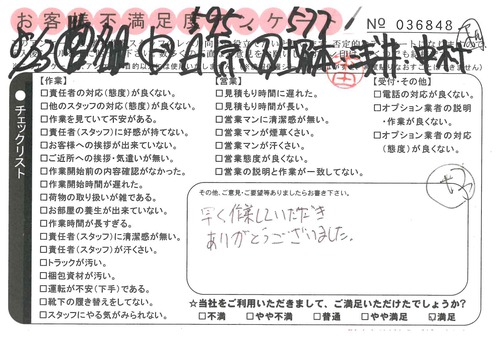 お客様不満足度アンケート
595-577
№ 036848
チェックリスト
【作業】
□責任者の対応(態度)が良くない。
□他のスタッフの対応(態度)が良くない。
□作業を見ていて不安がある。
□責任者(スタッフ)に好感が持てない。
□お客様への挨拶が出来ていない。
□ご近所への挨拶・気遣いが無い。
□作業開始前の内容確認がなかった。
□作業開始時間が遅れた。
□荷物の取り扱いが雑である。
□お部屋の養生が出来ていない。
□作業時間が長すぎる。
□責任者(スタッフ)に清潔感が無い。
□責任者(スタッフ)が汗くさい。
□トラックが汚い。
□梱包資材が汚い。
□運転が不安(下手)である。
□靴下の履き替えをしてない。
□スタッフにやる気がみられない。
【営業】
□見積もり時間に遅れた。
□見積もり時間が長い。
□営業マンに清潔感が無い。
□営業マンが煙草くさい。
□営業マンが汗くさい。
□営業態度が良くない。
□営業の説明と作業が一致してない。
【受付・その他】
□電話の対応が良くない。
□オプション業者の説明
・作業が良くない。
□オプション業者の対応
(態度)が良くない。
その他、ご意見・ご要望等ありましたらお書き下さい。
早く作業していただき
ありがとうございました。
☆当社をご利用いただきまして、ご満足いただけたでしょうか?
□不満 □やや不満 □普通 □やや満足 ☑満足